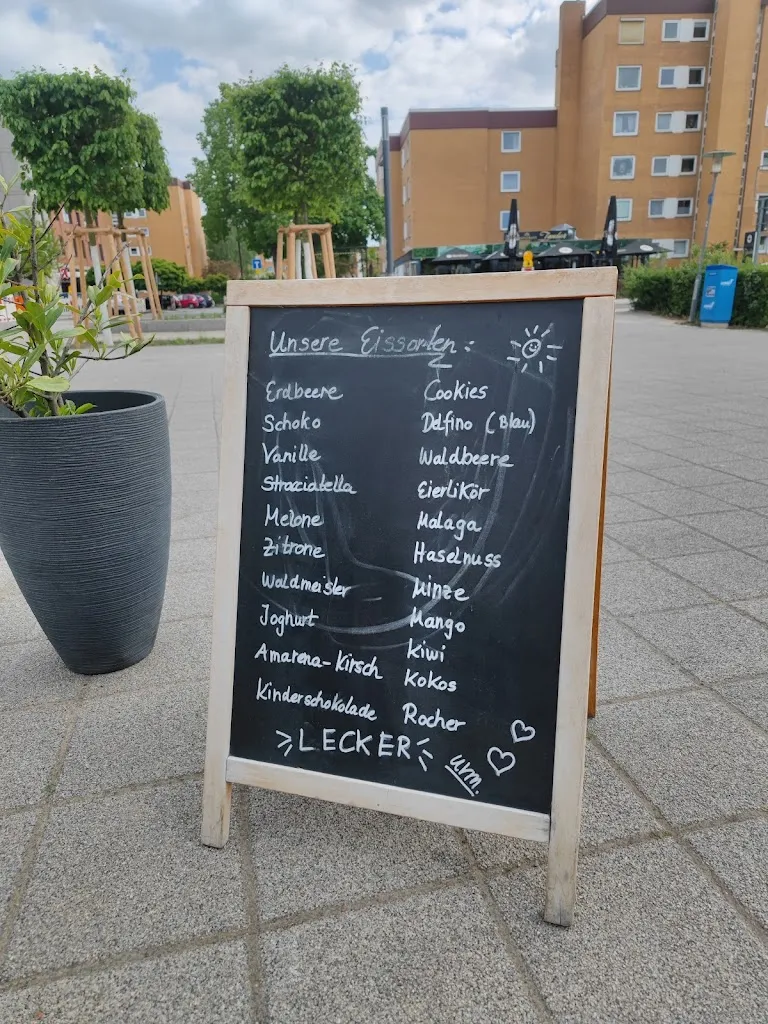 Unsere Eissorten:
Erdbeere
Schoko
Vanille
Straciatella
Melone
Zitrone
Waldmeister
Joghurt
Amarena-Kirsch
Kinderschokolade
Cookies
Delfino (Blau)
Waldbeere
Eierlikör
Malaga
Haselnuss
Minze
Mango
Kiwi
Kokos
Rocher
LECKER